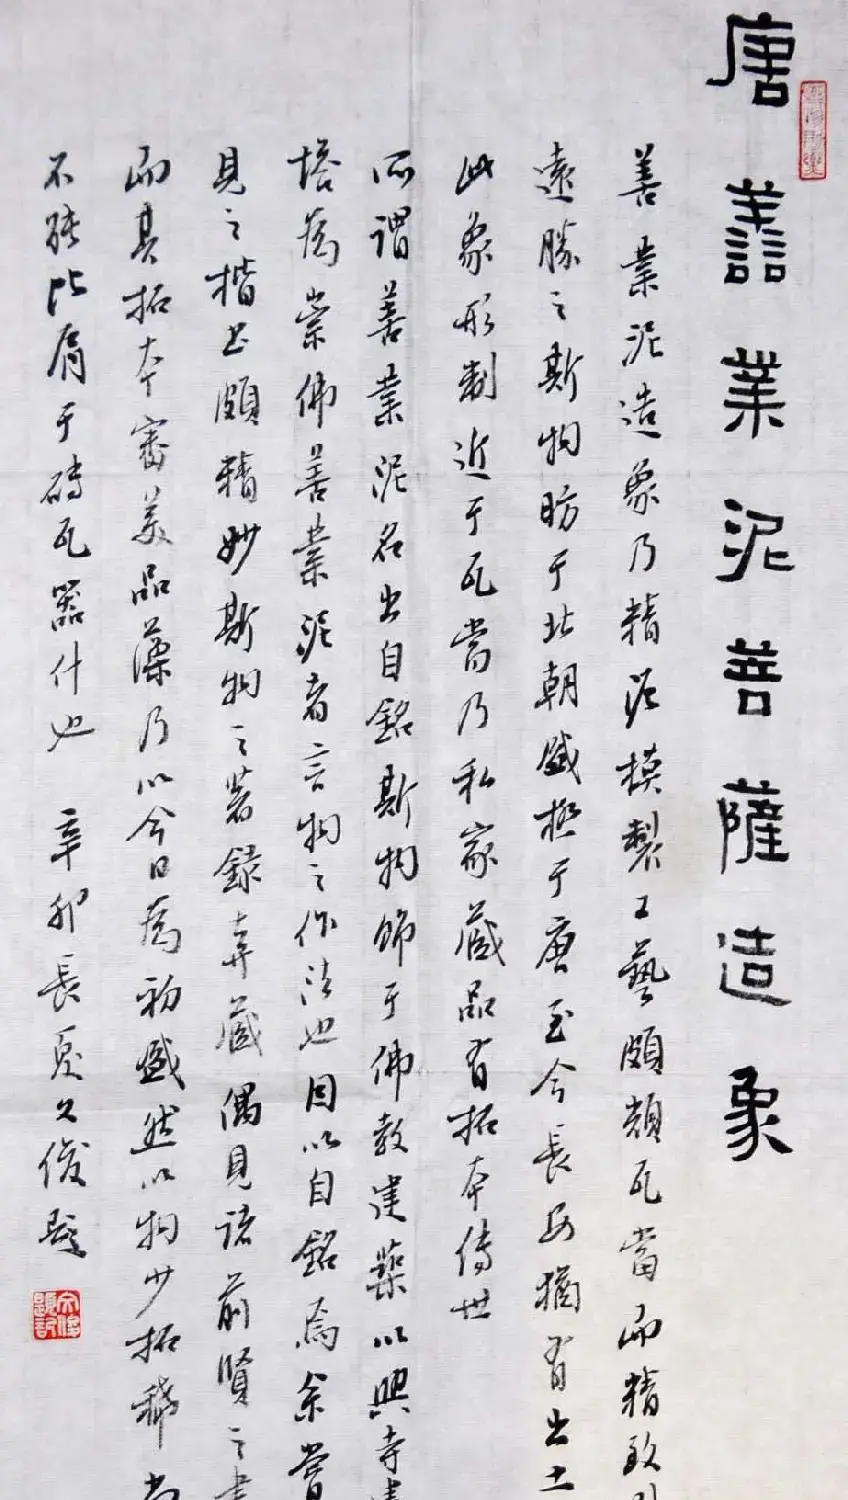 唐譱業泥菩薩造象
善業泥造象乃精泥模製工藝頗類瓦當而精致
遠勝之斯物昉于北朝盛極于唐至今長安猶有出土
此象形制近于瓦當乃私家藏品有拓本傳世
所謂善業泥名出自銘斯物飾于佛教建築以興寺建
塔為崇佛善業泥者言物之作法也因以自銘焉余嘗
見之楷書頗精妙斯物之著錄弆藏偶見諸前賢之書
而其拓本審美品藻乃以今日為初盛然以物少拓稀尚
不能比肩于磚瓦器什也 辛卯長夏文俊題